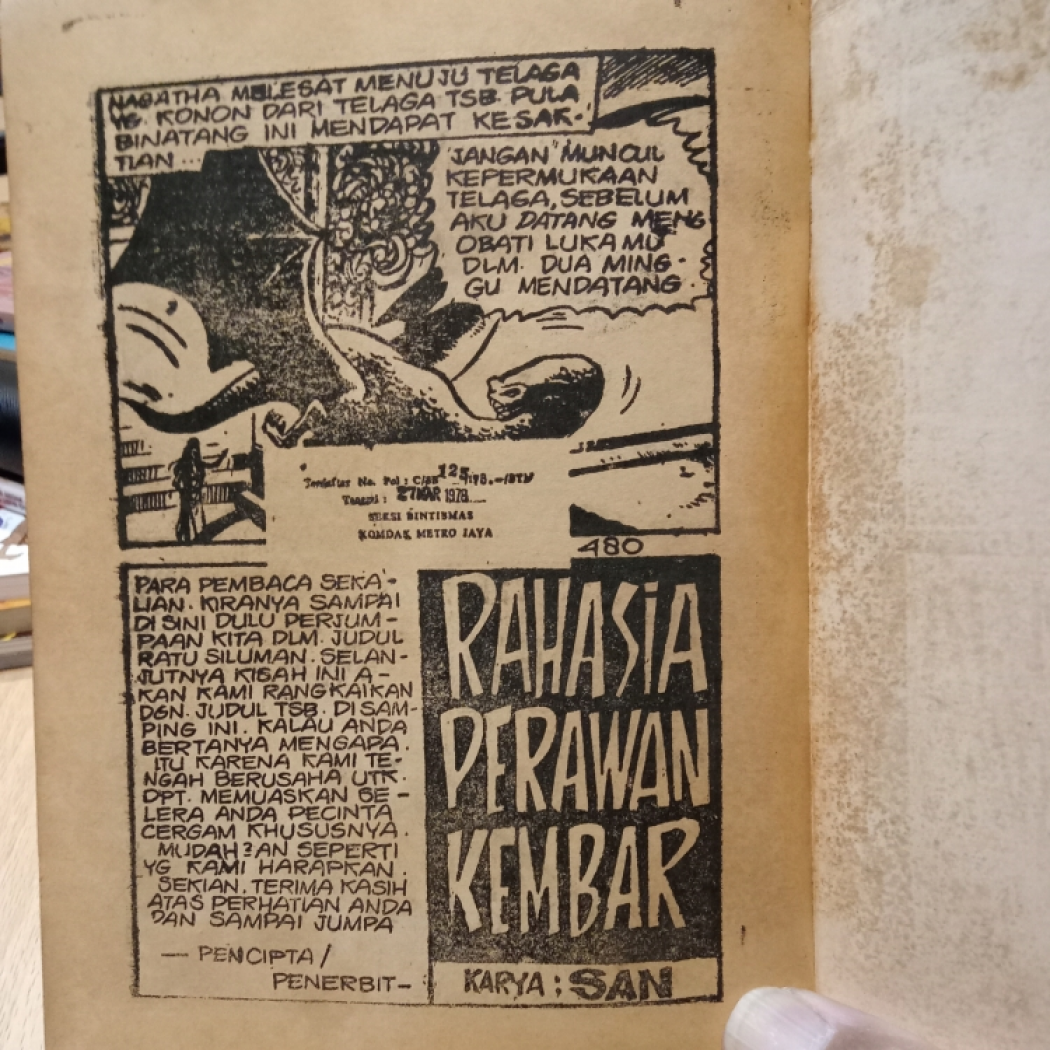 NAGATHA MELESAT MENUJU TELAGA
YG. KONON DARI TELAGA TSB. PULA
BINATANG INI MENDAPAT KESAK-
TIAN...
JANGAN MUNCUL
KEPERMUKAAN
TELAGA, SEBELUM
AKU DATANG MENG
OBATI LUKA MU
DLM. DUA MING-
GU MENDATANG.
Terdaftar No. Pol :
Tanggal : 27 MAR 1978
SEKSI BINTIBMAS
KOMDAK METRO JAYA
480
PARA PEMBACA SEKA-
LIAN. KIRANYA SAMPAI
DISINI DULU PERJUM-
PAAN KITA DLM. JUDUL
RATU SILUMAN. SELAN-
JUTNYA KISAH INI A-
KAN KAMI RANGKAIKAN
DGN. JUDUL TSB. DISAM-
PING INI. KALAU ANDA
BERTANYA MENGAPA.
ITU KARENA KAMI TE-
NGAH BERUSAHA UTK.
DPT. MEMUASKAN SE-
LERA ANDA PECINTA
CERGAM KHUSUSNYA.
MUDAH2AN SEPERTI
YG KAMI HARAPKAN.
SEKIAN. TERIMA KASIH
ATAS PERHATIAN ANDA
DAN SAMPAI JUMPA
— PENCIPTA/
PENERBIT—
RAHASIA
PERAWAN
KEMBAR
KARYA : SAN